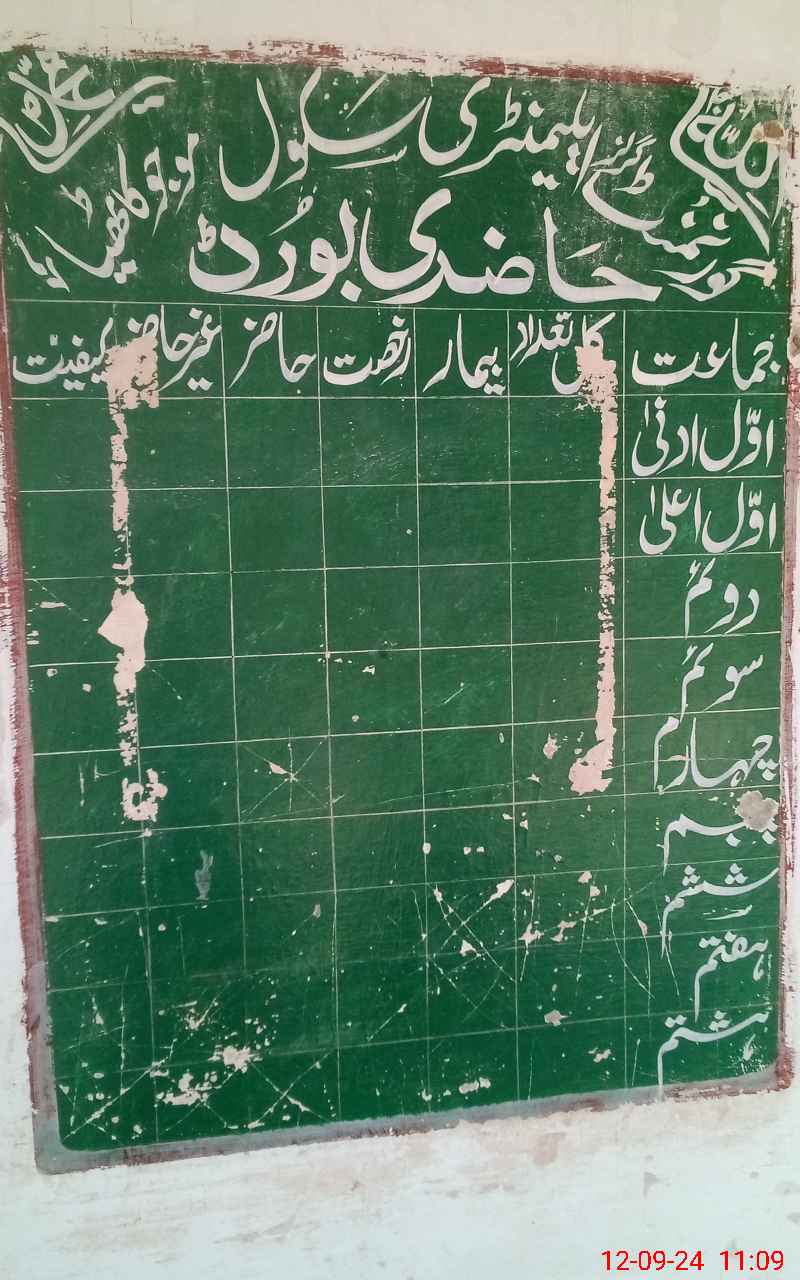 اللہ محمد
گورنمنٹ گرلز ایلیمنٹری سکول
حاضری بورڈ
جماعت کل تعداد بیمار رخصت حاضر غیر حاضر کیفیت
اوّل ادنیٰ
اوّل اعلیٰ
دوئم
سوئم
چہارم
پنجم
ششم
ہفتم
ہشتم
12-09-24 11:09